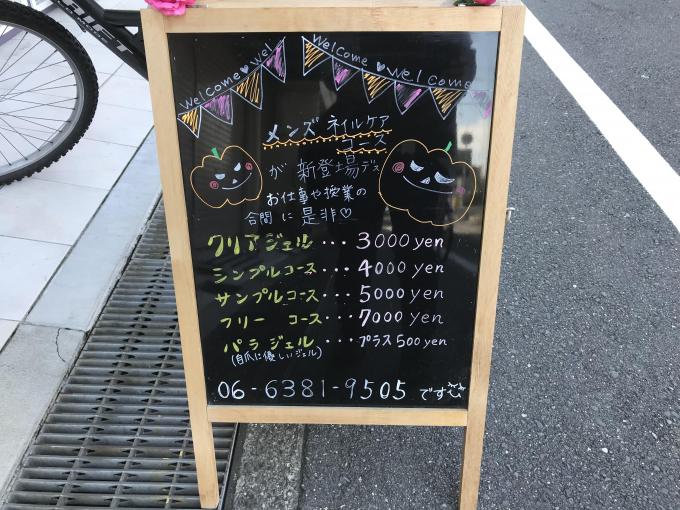 RIFT
Welcome♥Wel
Welcome♥Welcome
メンズネイルケア
コース
が新登場デス
お仕事や授業の
合間に是非♡
クリアジェル・・・3000yen
シンプルコース・・・4000yen
サンプルコース・・・5000yen
フリーコース・・・7000yen
パラジェル・・・プラス500yen
(自爪に優しいジェル)
06-6381-9505です